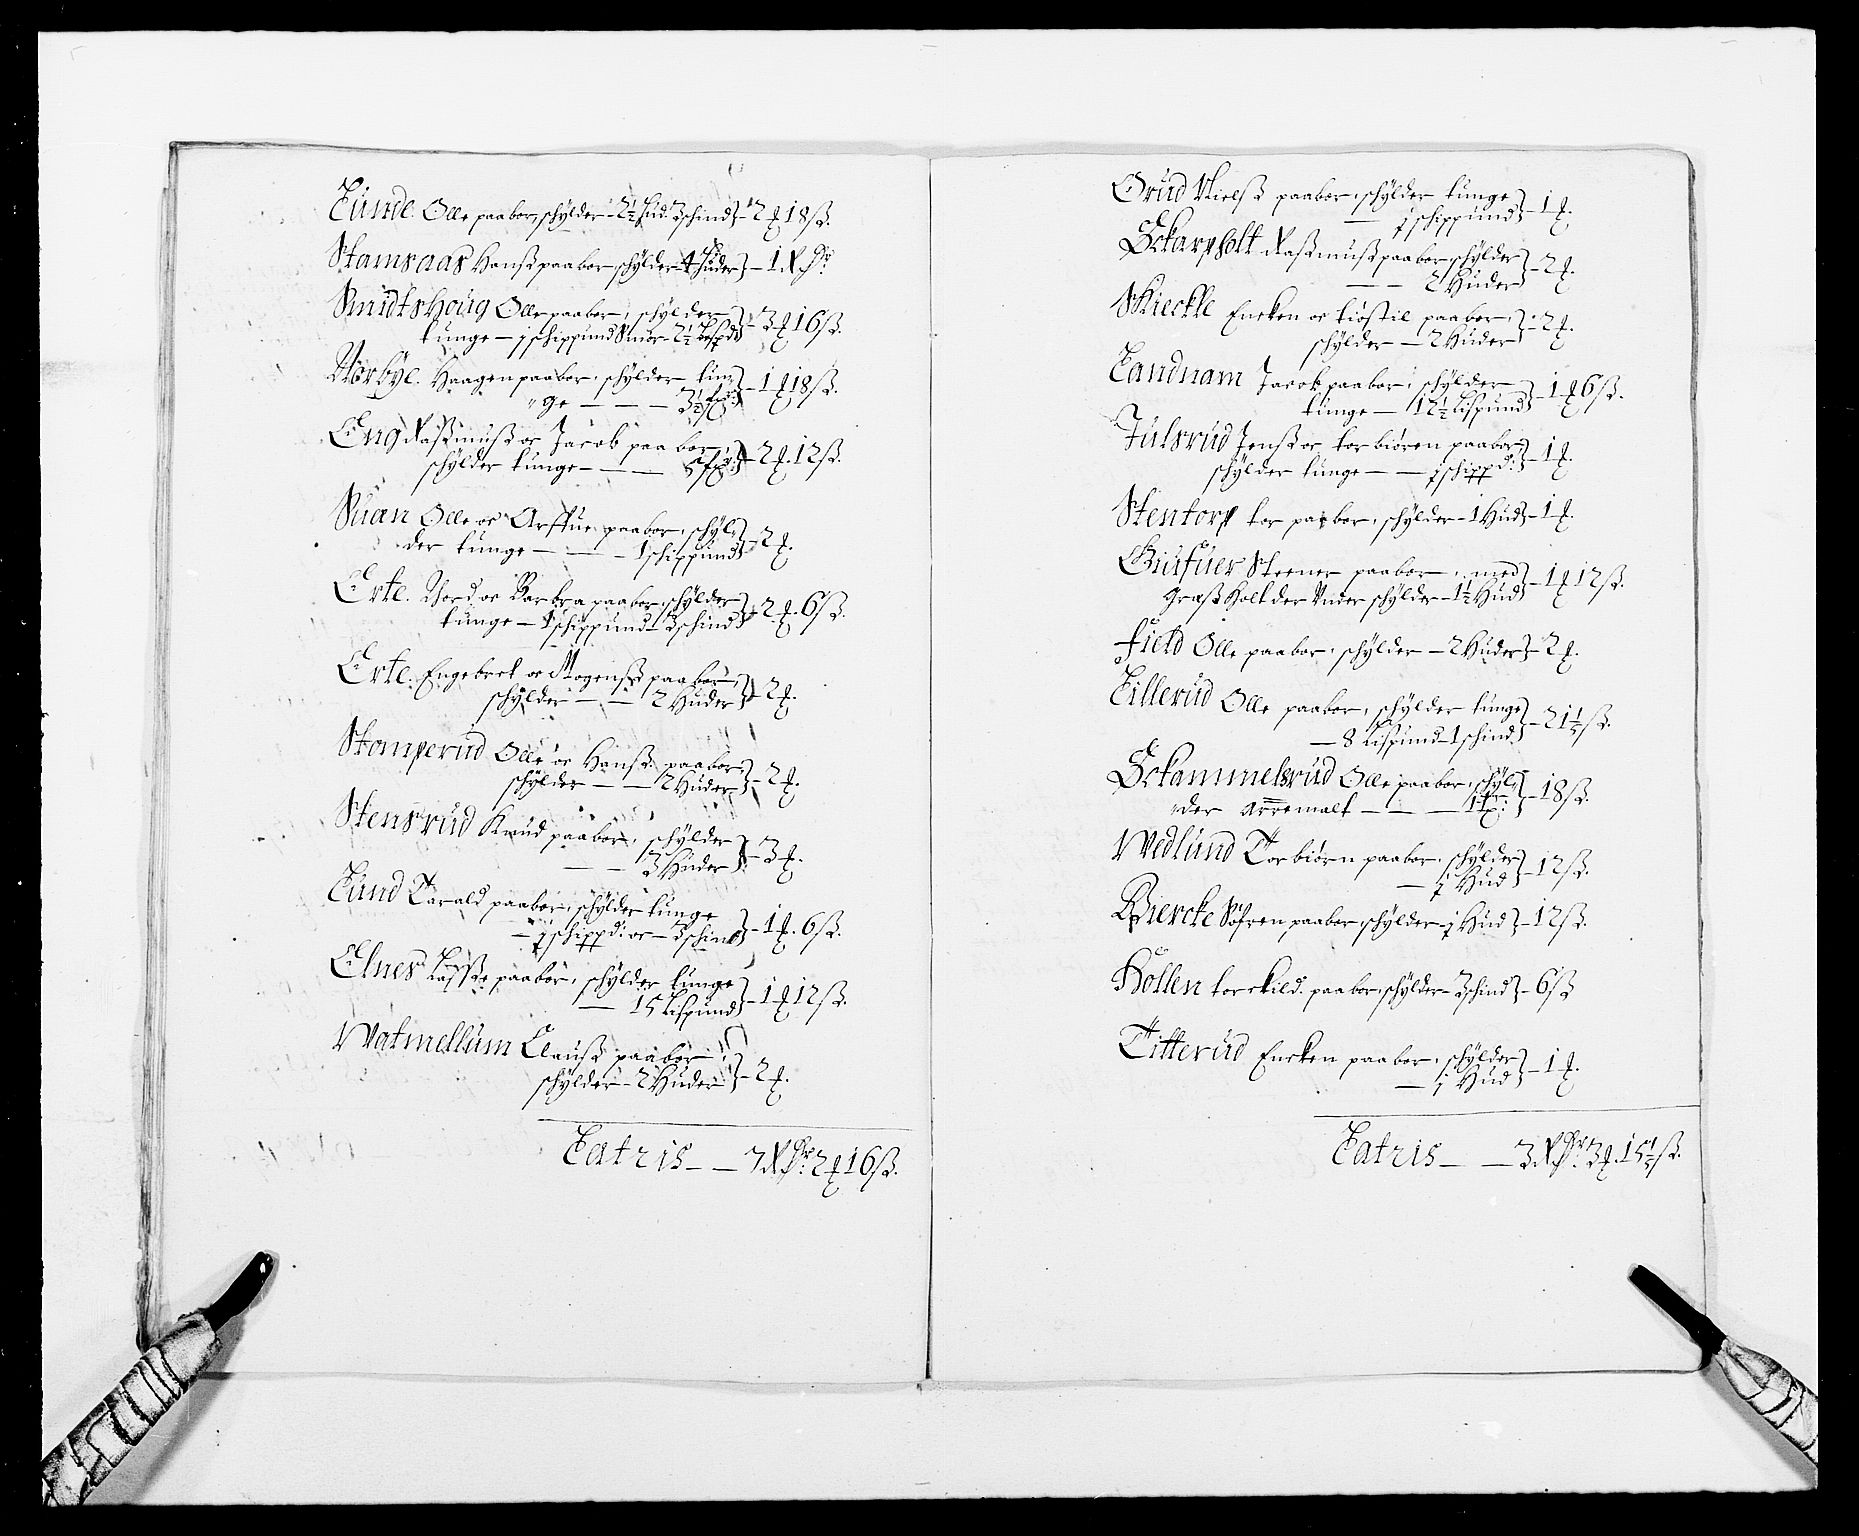 Lunde. Olle paabor, schylder - 2½ Hud. 3 schind - 2 ꝑ 18 ß.
Stamsaas Hanß paabor schylder 4 Huder - 1 Rdr
Smidtshoug Olle paabor, schylder
tunge - j schippund Smör - 2½ Bespd - 3 ꝑ 16 ß.
Norbÿe. Haagen paabor, schylder tun,
"ge - - - 3½ - 1 ꝑ 18 ß.
Eng Raßmuß oc Jacob paa bor,
schylder tunge - - - 2 ꝑ. 12 ß.
Suæn Olle oc Arffue paabor, schyl,
der tunge - - - 1 schippund - 2 ꝑ.
Erte. Nord oc Barbra paabor, schylder
tunge - 1 schippund - 3 schind - 2 ꝑ. 6 ß.
Erte. Engebret oc Mogenß paabor,
schylder - - 2 Huder - 2 ꝑ.
Stomperud Olle oc Hanß paabor,
schylder - - 2 Huder - 2 ꝑ.
Stensrud Knud paabor, schylder
- - 3 Huder - 3 ꝑ.
Lund Tarald paabor, schylder tunge
- j schippd: oc - 3 schind - 1 ꝑ. 6 ß.
Elnes Laßße paabor, schylder tunge
- 15 Lispund - 1 ꝑ 12 ß.
Watmellum Clauß paabor
schylder - 2 Huder - 2 ꝑ.
Latris - - 7 Rdr 2 ꝑ 16 ß.
Orud Nielß paabor, schylder tunge
- j schippund - 1 ꝑ.
Eckarpholt Raßmuß paabor schylder
- - 2 Huder - 2 ꝑ.
Skieckle Encken oc Kiöstil paabor,
schylder - 2 Huder - 2 ꝑ.
Landnam Jacob paabor, schylder
tunge - 12½ Lispund - 1 ꝑ 6 ß.
Julsrud Jenß oc torbiören paabor,
schylder tunge - - j schippd: - 1 ꝑ.
Stentorp tor paabor, schylder - 1 Hud - 1 ꝑ.
Gusfuer Steener paabor, med
Græß Holt der Under schylder - 1½ Hud - 1 ꝑ 12 ß.
Field Olle paabor, schylder - 2 Huder - 2 ꝑ.
Lillerud Olle paabor, schylder tunge
- 8 Lispund - 1 schind - 21½ ß.
Eckammelsrud Olle paabor, schyl,
"der Arremalt - - - 18 ß.
Wedlund Torbiörn paabor, schylder
- j Hud - 12 ß.
Biercke Söfren paabor, schylder - j Hud - 12 ß.
Kollen torckild. paabor, schylder - 3 schind - 6 ß
Titterud Encken paabor, schylder
- j Hud - 1 ꝑ.
Latris - - 3 Rdr 3 ꝑ. 15½ ß.